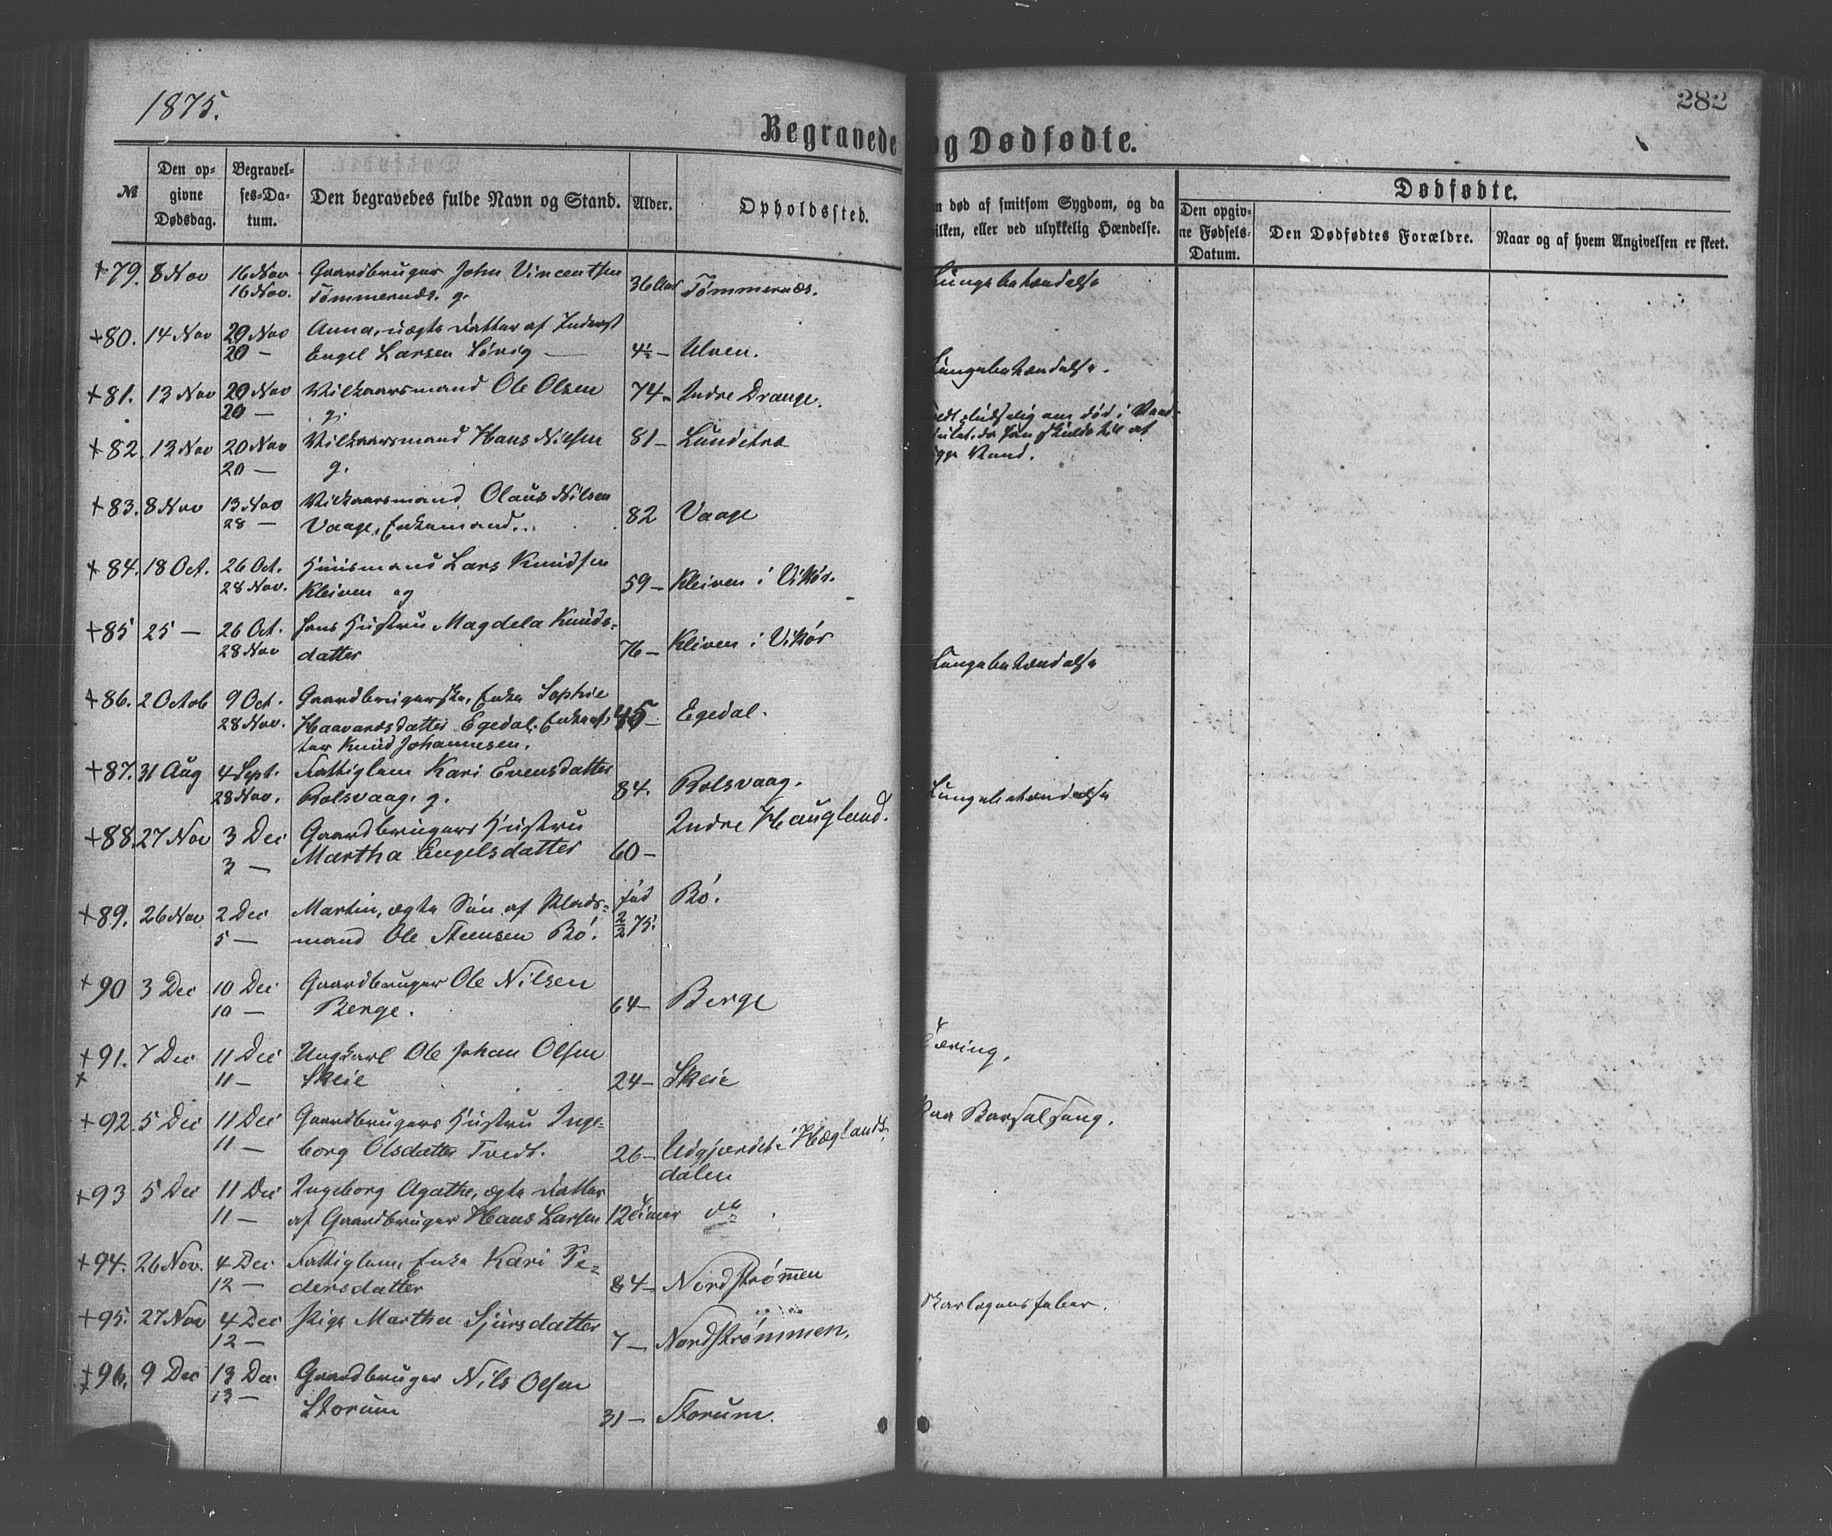 1875.
282
Begravede og Dødfødte.
№
Den op-
givne
Dødsdag.
Begravel-
ses-Da-
tum.
Den begravedes fulde Navn og Stand.
Alder.
Opholdssted.
død af smitsom Sygdom, og da
eller ved ulykkelig Hændelse.
Dødfødte.
Den opgiv-
ne Fødsels-
Datum.
Den Dødfødtes Forældre.
Naar og af hvem Angivelsen er skeet.
+79. 8 Nov 16 Nov Gaardbruger John Vincentsen 36 Aar Tømmernæs. Lungebetændelse
16 Nov. Tømmernæs. g.
+80. 14 Nov 20 Nov Anna, uægte Datter af Inderst
20 — Engel Larsen Sørvig — 4½ — Ulven. Lungebetændelse.
+81. 13 Nov 20 Nov Vilkaarsmand Ole Olsen 74 — Indre Drange.
20 — g. død i Vand-
+82. 13 Nov 20 Nov Vilkaarsmand Hans Nilsen 81 — Lundetræ da han skulde til at
20 — g. Vand.
+83. 8 Nov 13 Nov Vilkaarsmand Olaus Nilsen
28 — Vaage, Enkemand. 82 Vaage
+84. 18 Oct. 26 Oct. Huusmand Lars Knudsen
28 Nov. Kleiven og 59 — Kleiven i Vikør.
+85 25 — 26 Oct. hans Hustru Magdela Knuds-
28 Nov datter 76 — Kleiven i Vikør Lungebetændelse
+86. 2 Octob 9 Oct. Gaardbrugerske, Enke Sophie
28 Nov. Haavardsdatter Egedal. Enke ef- 45 — Egedal.
ter Knud Johannesen.
+87. 31 Aug 4 Sept. Fattiglem Kari Evensdatter
28 Nov. Rolsvaag. g. 84. Rolsvaag. Lungebetændelse
+88. 27 Nov 3 Dec Gaardbrugers Hustru Indre Haugland.
3 — Martha Engelsdatter 60 —
+89. 26 Nov 2 Dec Martin, ægte Søn af Plads- fød Bø.
5 — mand Ole Steensen Bø. 2/2 75.
+90 3 Dec 10 Dec Gaardbruger Ole Nilsen
10 — Berge. 64 — Berge
+91. 7 Dec 11 Dec Ungkarl Ole Johan Olsen Tæring.
+ 11 — Skeie 24 — Skeie
+92. 5 Dec 11 Dec Gaardbrugers Hustru Inge- Paa Barselseng.
11 — borg Olsdatter Tvedt. 26 — Udgjerdet i Hæglands-
dalen
+93 5 Dec 11 Dec Ingeborg Agathe, ægte Datter
11 — af Gaardbruger Hans Larsen 12 Timer do
+94. 26 Nov. 4 Dec Fattiglem, Enke Kari Pe-
12 — dersdatter 84 — Nordstrømmen
+95. 27 Nov 4 Dec Pige Martha Sjursdatter Skarlagensfeber.
12 — 7 — Nordstrømmen.
+96. 9 Dec 13 Dec Gaardbruger Nils Olsen
13 — Storum 31 — Storum.